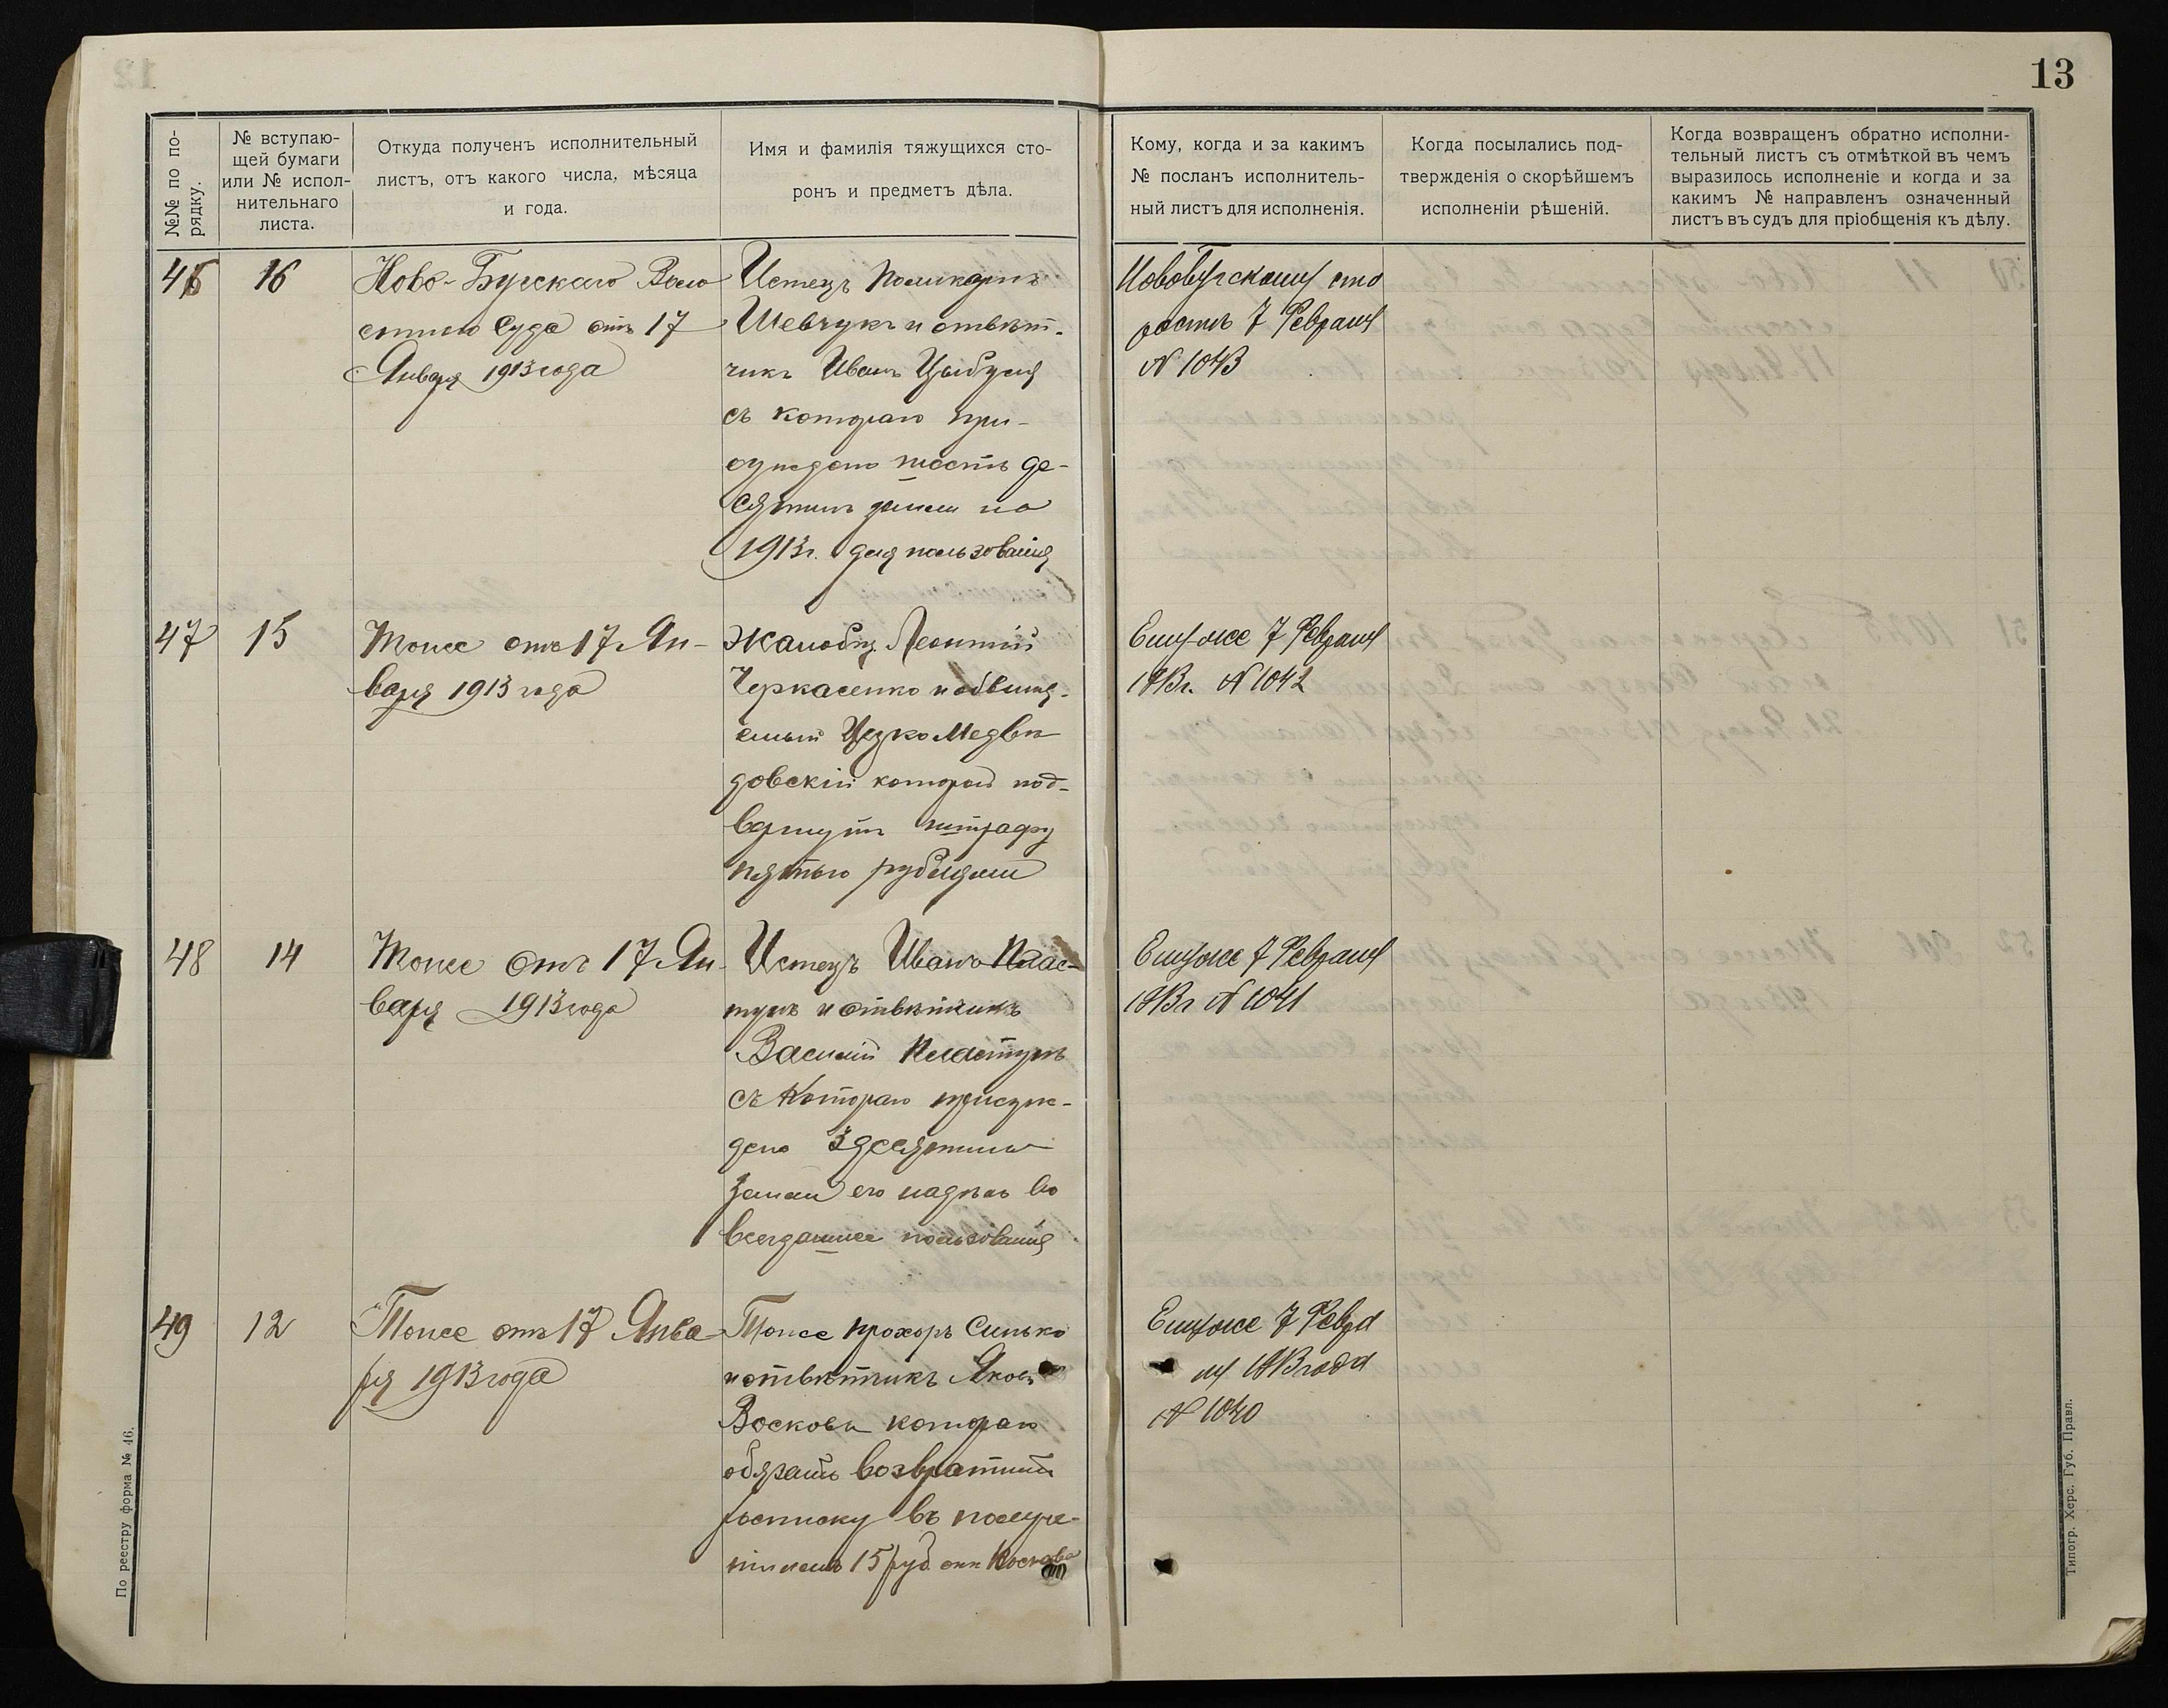 13
№№ по по-
рядку.
№ вступаю-
щей бумаги
или № испол-
нительнаго
листа.
Откуда полученъ исполнительный
листъ, отъ какого числа, мѣсяца
и года.
Имя и фамилія тяжущихся сто-
ронъ и предметъ дѣла.
Кому, когда и за какимъ
№ посланъ исполнитель-
ный листъ для исполненія.
Когда посылались под-
твержденія о скорѣйшемъ
исполненіи рѣшеній.
Когда возвращенъ обратно исполни-
тельный листъ съ отмѣткой въ чемъ
выразилось исполненіе и когда и за
какимъ № направленъ означенный
листъ въ судъ для пріобщенія къ дѣлу.
46
16
Ново-Бугскаго Воло
стного Суда отъ 17
Января 1913 года
Истецъ Поликарпъ
Шевчукъ и отвѣт-
чикъ Иванъ Цыбуля
съ котораго при-
суждено шесть де-
сятинъ земли на
1913 г. для пользованія
Новобугскому ста
ростѣ 7 Февраля
№ 1043
47
15
Тоже отъ 17 Ян-
варя 1913 года
Жалобщ. Леонтій
Черкасенко и обвиня-
емый Медвѣ
довскій который под-
вергнутъ штрафу
пятью рублями
Ему же 7 Февраля
1913 г. № 1042
48
14
Тоже отъ 17 Ян-
варя 1913 года
Истецъ Иванъ Плас-
тунъ и отвѣтчикъ
Василій Пластунъ
съ котораго присуж-
дено 3 десятины
земли его надѣла во
всегдашнее пользованія
Ему же 7 Февраля
1913 г № 1041
49
12
Тоже отъ 17 Янва
ря 1913 года
Тоже Прохоръ Синько
и отвѣтчикъ Яковъ
Восковъ котораго
обязать возвратить
росписку въ получе-
ніи 15 руб.
Ему же 7 Февра
ля 1913 года
№ 1040
По реестру форма № 46.
Типогр. Херс. Губ. Правл.